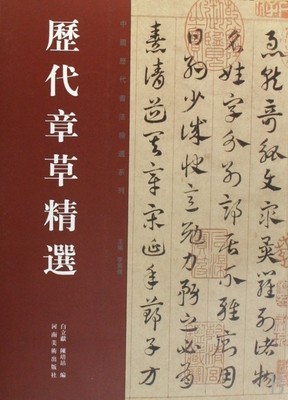 歷代章草精選
中國歷代書法精選系列
白立獻 陳培站 編
河南美術出版社
急就奇觚與衆異羅列諸物
名姓字分別部居不雜廁用
日約少誠快意勉力務之必有
憙請道其章宋延年鄭子方